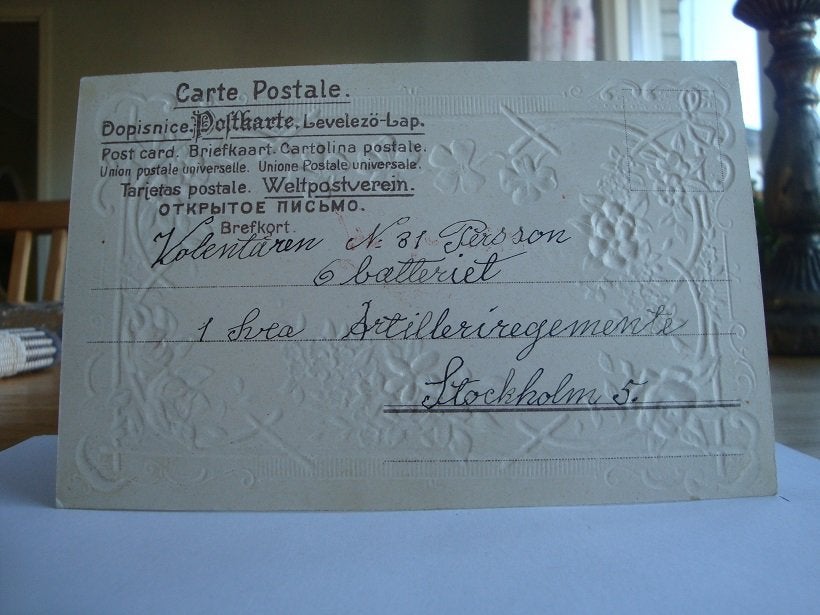 Carte Postale.
Dopisnice. Postkarte. Levelező-Lap.
Post card. Briefkaart. Cartolina postale.
Union postale universelle. Unione Postale universale.
Tarjetas postale. Weltpostverein.
ОТКРЫТОЕ ПИСЬМО.
Brefkort.
Volentären N: 31 Persson
6 batteriet
1 Svea Artilleriregemente
Stockholm 5.